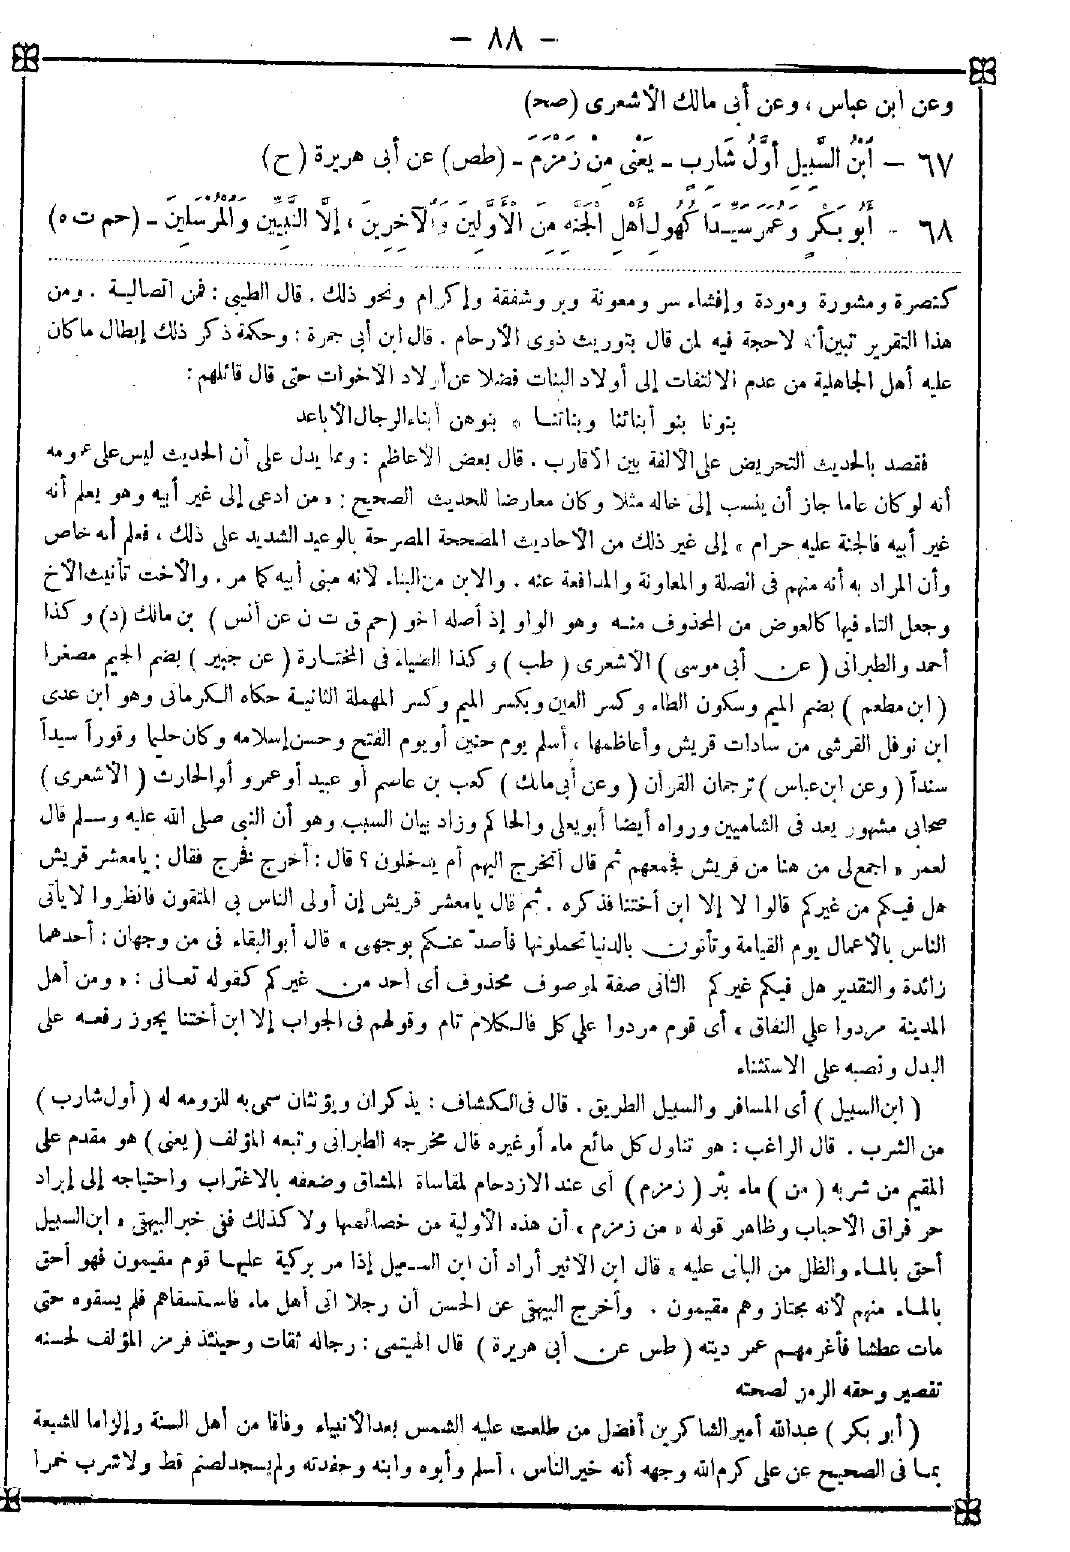 - ٨٨ -
وعن ابن عباس ، وعن أبى مالك الأشعرى (صح)
٦٧ — اَبْنُ السَّبِيلِ أَوَّلُ شَارِبٍ - يَعْنِى مِنْ زَمْزَمَ - (طص) عن أبى هريرة (ح)
٦٨ - أَبُو بَكْرٍ وَعُمَرُ سَيِّدَا كُهُولِ أَهْلِ الْجَنَّةِ مِنَ الْأَوَّلِينَ وَالْآخِرِينَ ، إِلَّا النَّبِيِّينَ وَالْمُرْسَلِينَ - (حم ت ه)
كنصرة ومشورة ومودة وإفشاء سر ومعونة وبر وشفقة وإكرام ونحو ذلك . قال الطيبى : فمن اتصالية . ومن
هذا التقرير تبين أنه لاحجة فيه لمن قال بتوريث ذوى الأرحام . قال ابن أبى جمرة : وحكمة ذكر ذلك إبطال ما كان
عليه أهل الجاهلية من عدم الالتفات إلى أولاد البنات فضلا عن أولاد الاخوات حتى قال قائلهم :
بنونا بنو أبنائنا وبناتنا * بنوهن أبناء الرجال الأباعد
فقصد بالحديث التحريض على الالفة بين الاقارب . قال بعض الأعاظم : ومما يدل على أن الحديث ليس على عمومه
أنه لو كان عاما جاز أن ينسب إلى خاله مثلا وكان معارضا للحديث الصحيح : « من ادعى إلى غير أبيه وهو يعلم أنه
غير أبيه فالجنة عليه حرام » إلى غير ذلك من الأحاديث المصححة المصرحة بالوعيد الشديد على ذلك ، فعلم أنه خاص
وأن المراد به أنه منهم فى الصلة والمعاونة والمدافعة عنه . والابن من البناء لأنه مبنى أبيه كما مر . والأخت تأنيث الأخ
وجعل التاء فيها كالعوض من المحذوف منه وهو الواو إذ أصله اخو (حم ق ت ن عن أنس) بن مالك (د) وكذا
أحمد والطبرانى (عن أبى موسى) الأشعرى (طب) وكذا الضياء فى المختارة (عن جبير) بضم الجيم مصغرا
(ابن مطعم) بضم الميم وسكون الطاء وكسر العين وبكسر الميم وكسر المهملة الثانية حكاه الكرمانى وهو ابن عدى
ابن نوفل القرشى من سادات قريش وأعاظمها ، أسلم يوم حنين أو يوم الفتح وحسن إسلامه وكان حليما وقوراً سيداً
سنداً (وعن ابن عباس) ترجمان القرآن (وعن أبى مالك) كعب بن عاصم أو عبيد أو عمرو أو الحارث (الأشعرى)
صحابى مشهور يعد فى الشاميين ورواه أيضا أبو يعلى والحاكم وزاد بيان السبب وهو أن النبى صلى الله عليه وسلم قال
لعمر « اجمع لى من هنا من قريش فجمعهم ثم قال أتخرج اليهم أم يدخلون ؟ قال : أخرج فخرج فقال : يا معشر قريش
هل فيكم من غيركم قالوا لا إلا ابن أختنا فذكره . ثم قال يا معشر قريش إن أولى الناس بى المتقون فانظروا لا يأتى
الناس بالأعمال يوم القيامة وتأتون بالدنيا تحملونها فأصدّ عنكم بوجهى » قال أبو البقاء فى من وجهان : أحدهما
زائدة والتقدير هل فيكم غيركم الثانى صفة لموصوف محذوف أى احد من غيركم كقوله تعالى : « ومن أهل
المدينة مردوا على النفاق » أى قوم مردوا على كل فالكلام تام وقولهم فى الجواب إلا ابن أختنا يجوز رفعه على
البدل ونصبه على الاستثناء
(ابن السبيل) أى المسافر والسبيل الطريق . قال فى الكشاف : يذكران ويؤنثان سمى به للزومه له (أول شارب)
من الشرب . قال الراغب : هو تناول كل مائع ماء أو غيره قال مخرجه الطبرانى وتبعه المؤلف (يعنى) هو مقدم على
المقيم من شربه (من) ماء بئر (زمزم) أى عند الازدحام لمقاساة المشاق وضعفه بالاغتراب واحتياجه إلى إبراد
حر فراق الأحباب وظاهر قوله « من زمزم » أن هذه الأولية من خصائصها ولا كذلك فقى خبر البيهقى « ابن السبيل
أحق بالماء والظل من البانى عليه » قال ابن الاثير أراد أن ابن السبيل إذا مر بركية عليها قوم مقيمون فهو أحق
بالماء منهم لأنه مجتاز وهم مقيمون . وأخرج البيهقى عن الحسن أن رجلا اتى أهل ماء فاستسقاهم فلم يسقوه حتى
مات عطشا فأغرمهم عمر ديته (طس عن أبى هريرة) قال الهيتمى : رجاله ثقات وحينئذ فرمز المؤلف لحسنه
تقصير وحقه الرمز لصحته
(أبو بكر) عبدالله أمير الشاكرين أفضل من طلعت عليه الشمس بعد الأنبياء وفاقا من أهل السنة وإلزاما للشيعة
بما فى الصحيح عن على كرم الله وجهه أنه خير الناس ، أسلم وأبوه وابنه وحفدته ولم يسجد لصنم قط ولا شرب خمرا